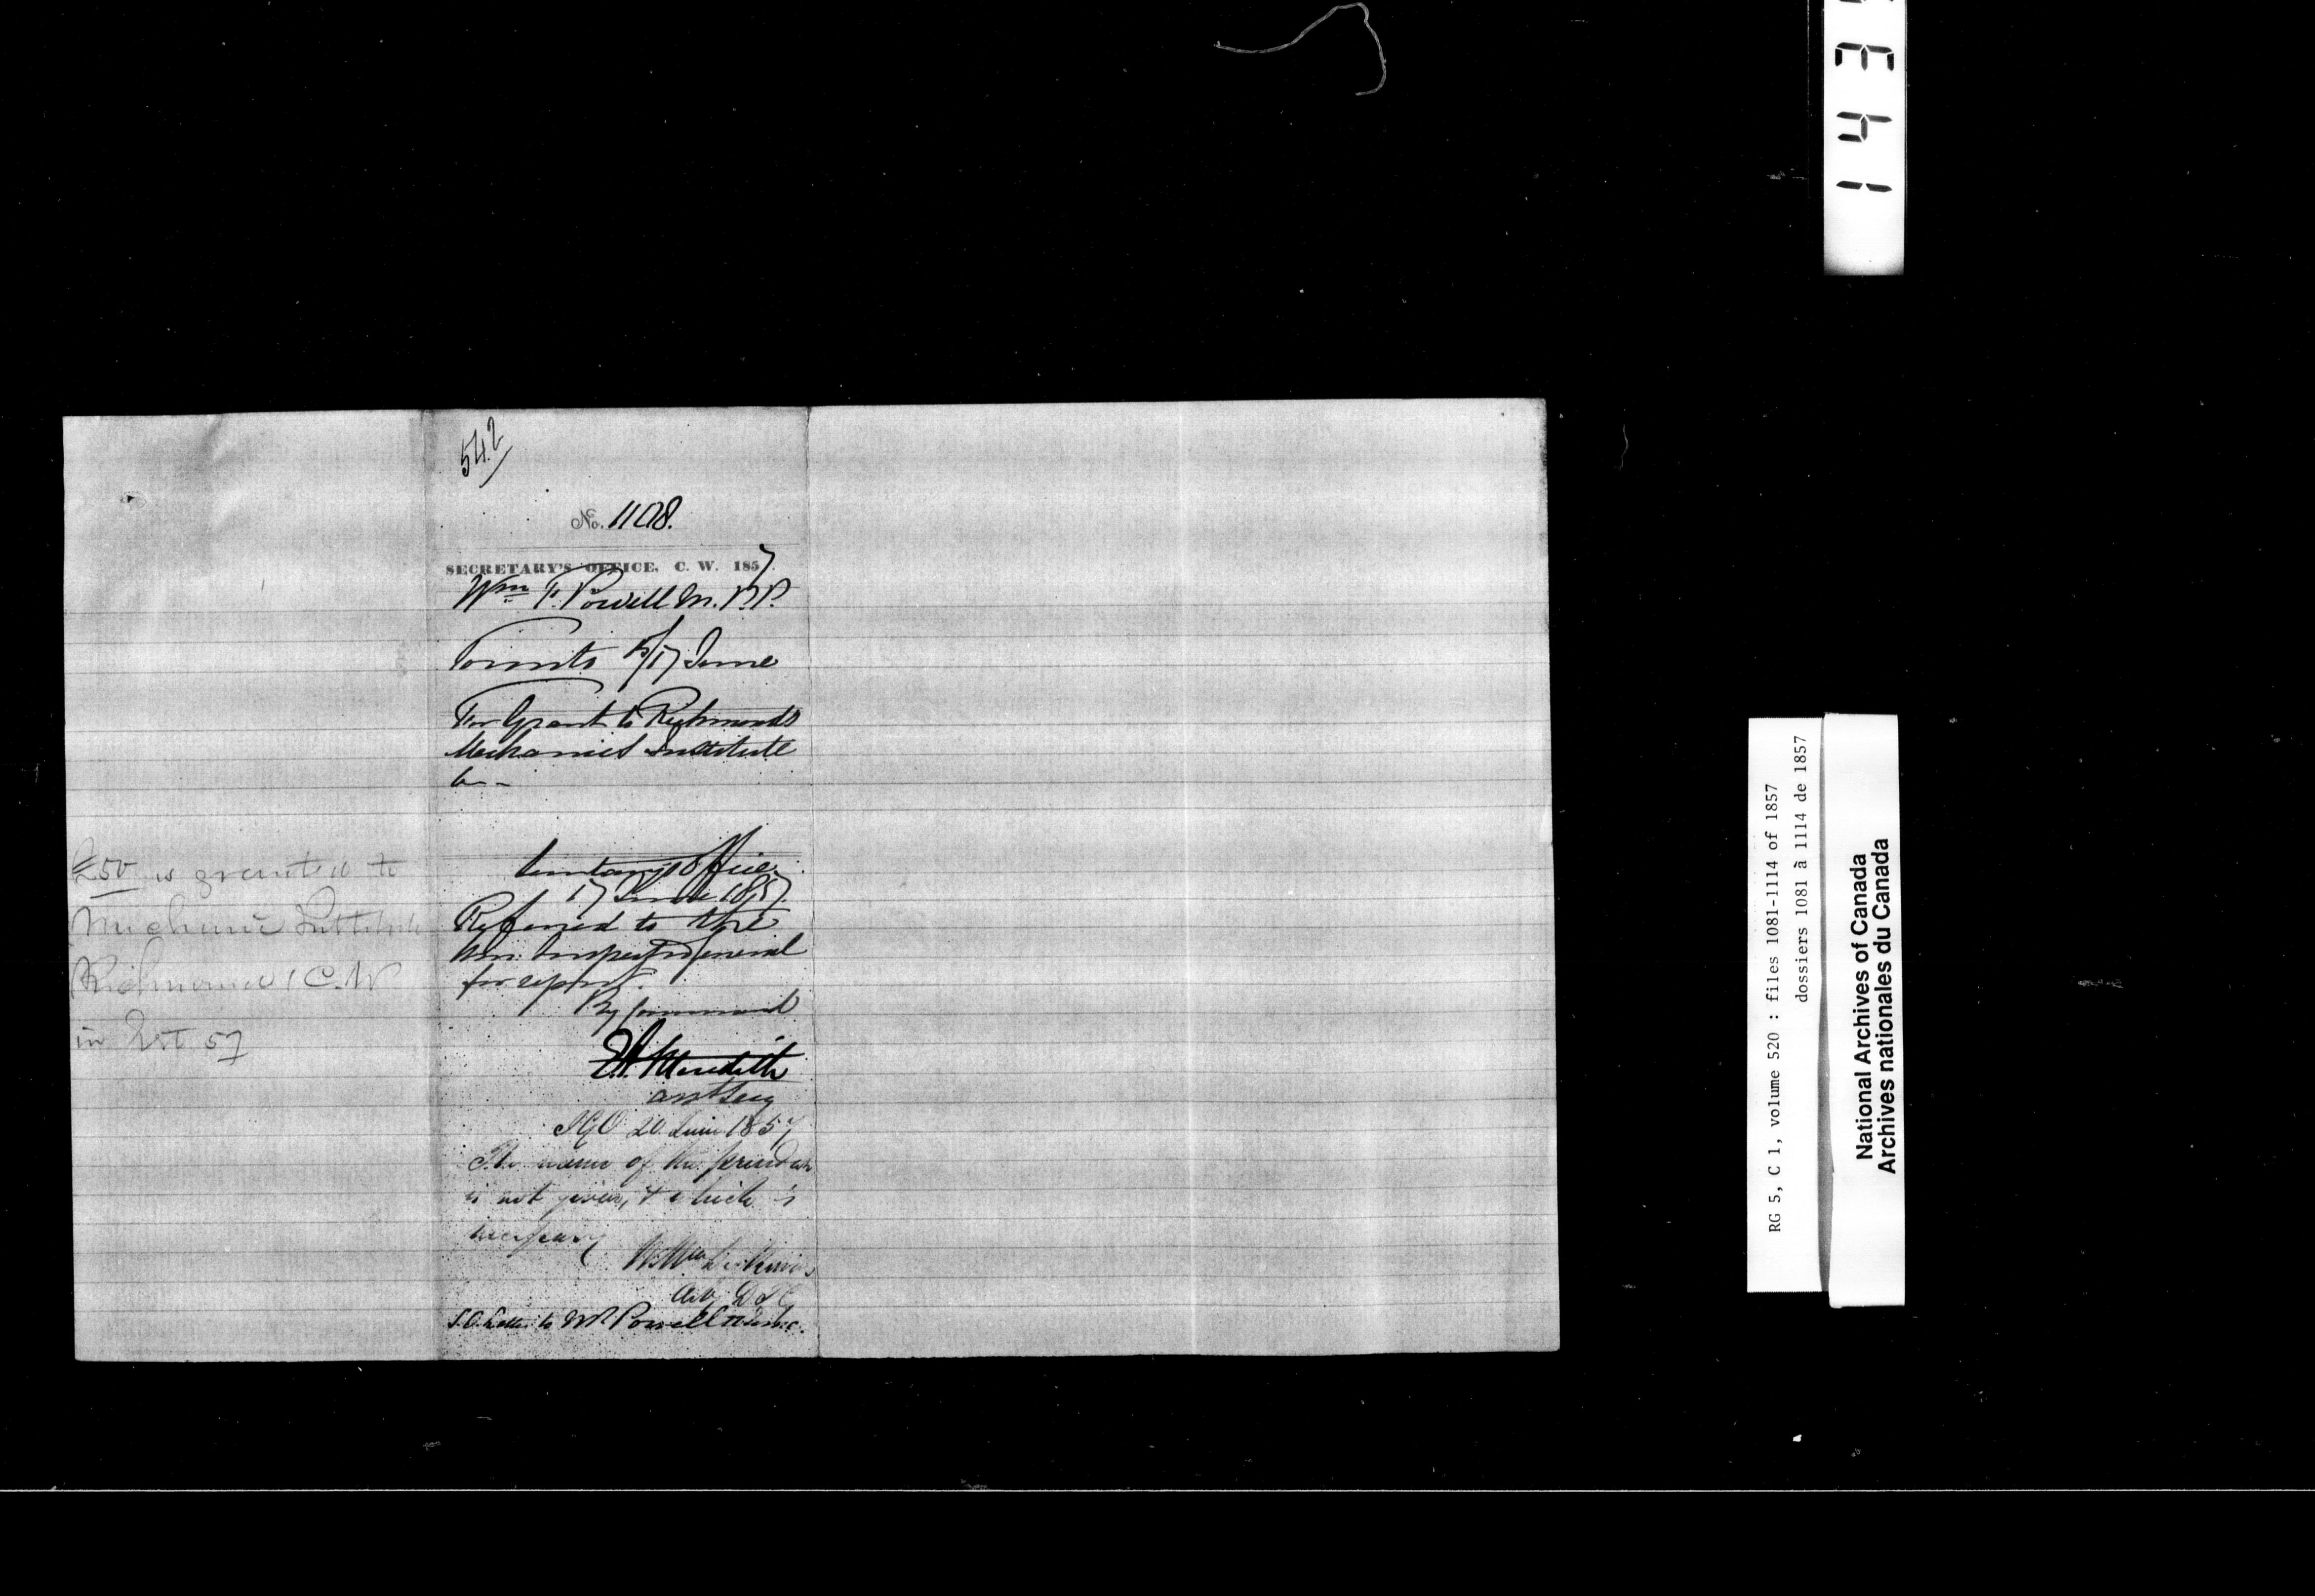 542
No. 1108.
SECRETARY'S OFFICE, C. W. 1857.
Wm F. Powell M.P.P.
Toronto 15/17 June
For Grant to Richmond
Mechanics Institute
Secretary's Office
17 June 1857.
Referred to the
Hon: Inspector General
for report.
By Command
E.A. Meredith
Asst Secy
IGO 20 June 1857
The name of the president
is not given, & which is
necessary
Wm Dickinson
Actg D I G
S.O. Letter to Mr Powell
£50 is granted to
Mechanic Institute
Richmond C.W
in Est 57
143
RG 5, C 1, volume 520 : files 1081-1114 of 1857
dossiers 1081 à 1114 de 1857
National Archives of Canada
Archives nationales du Canada